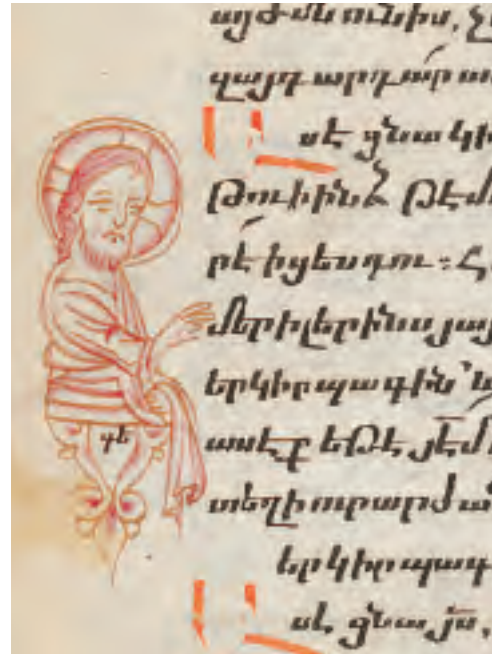 այժմն ունիս, չ
զայդ արդար ա
Ասէ ցնա կի
թուի ինձ թէ մ
րէ իցես դու։ Հ
մեր ի լերինս յայ
երկիր պագին՝ և
ասէք եթէ յէմ
տեղի ուր արժան
երկիր պագ
Ասէ ցնա յս,